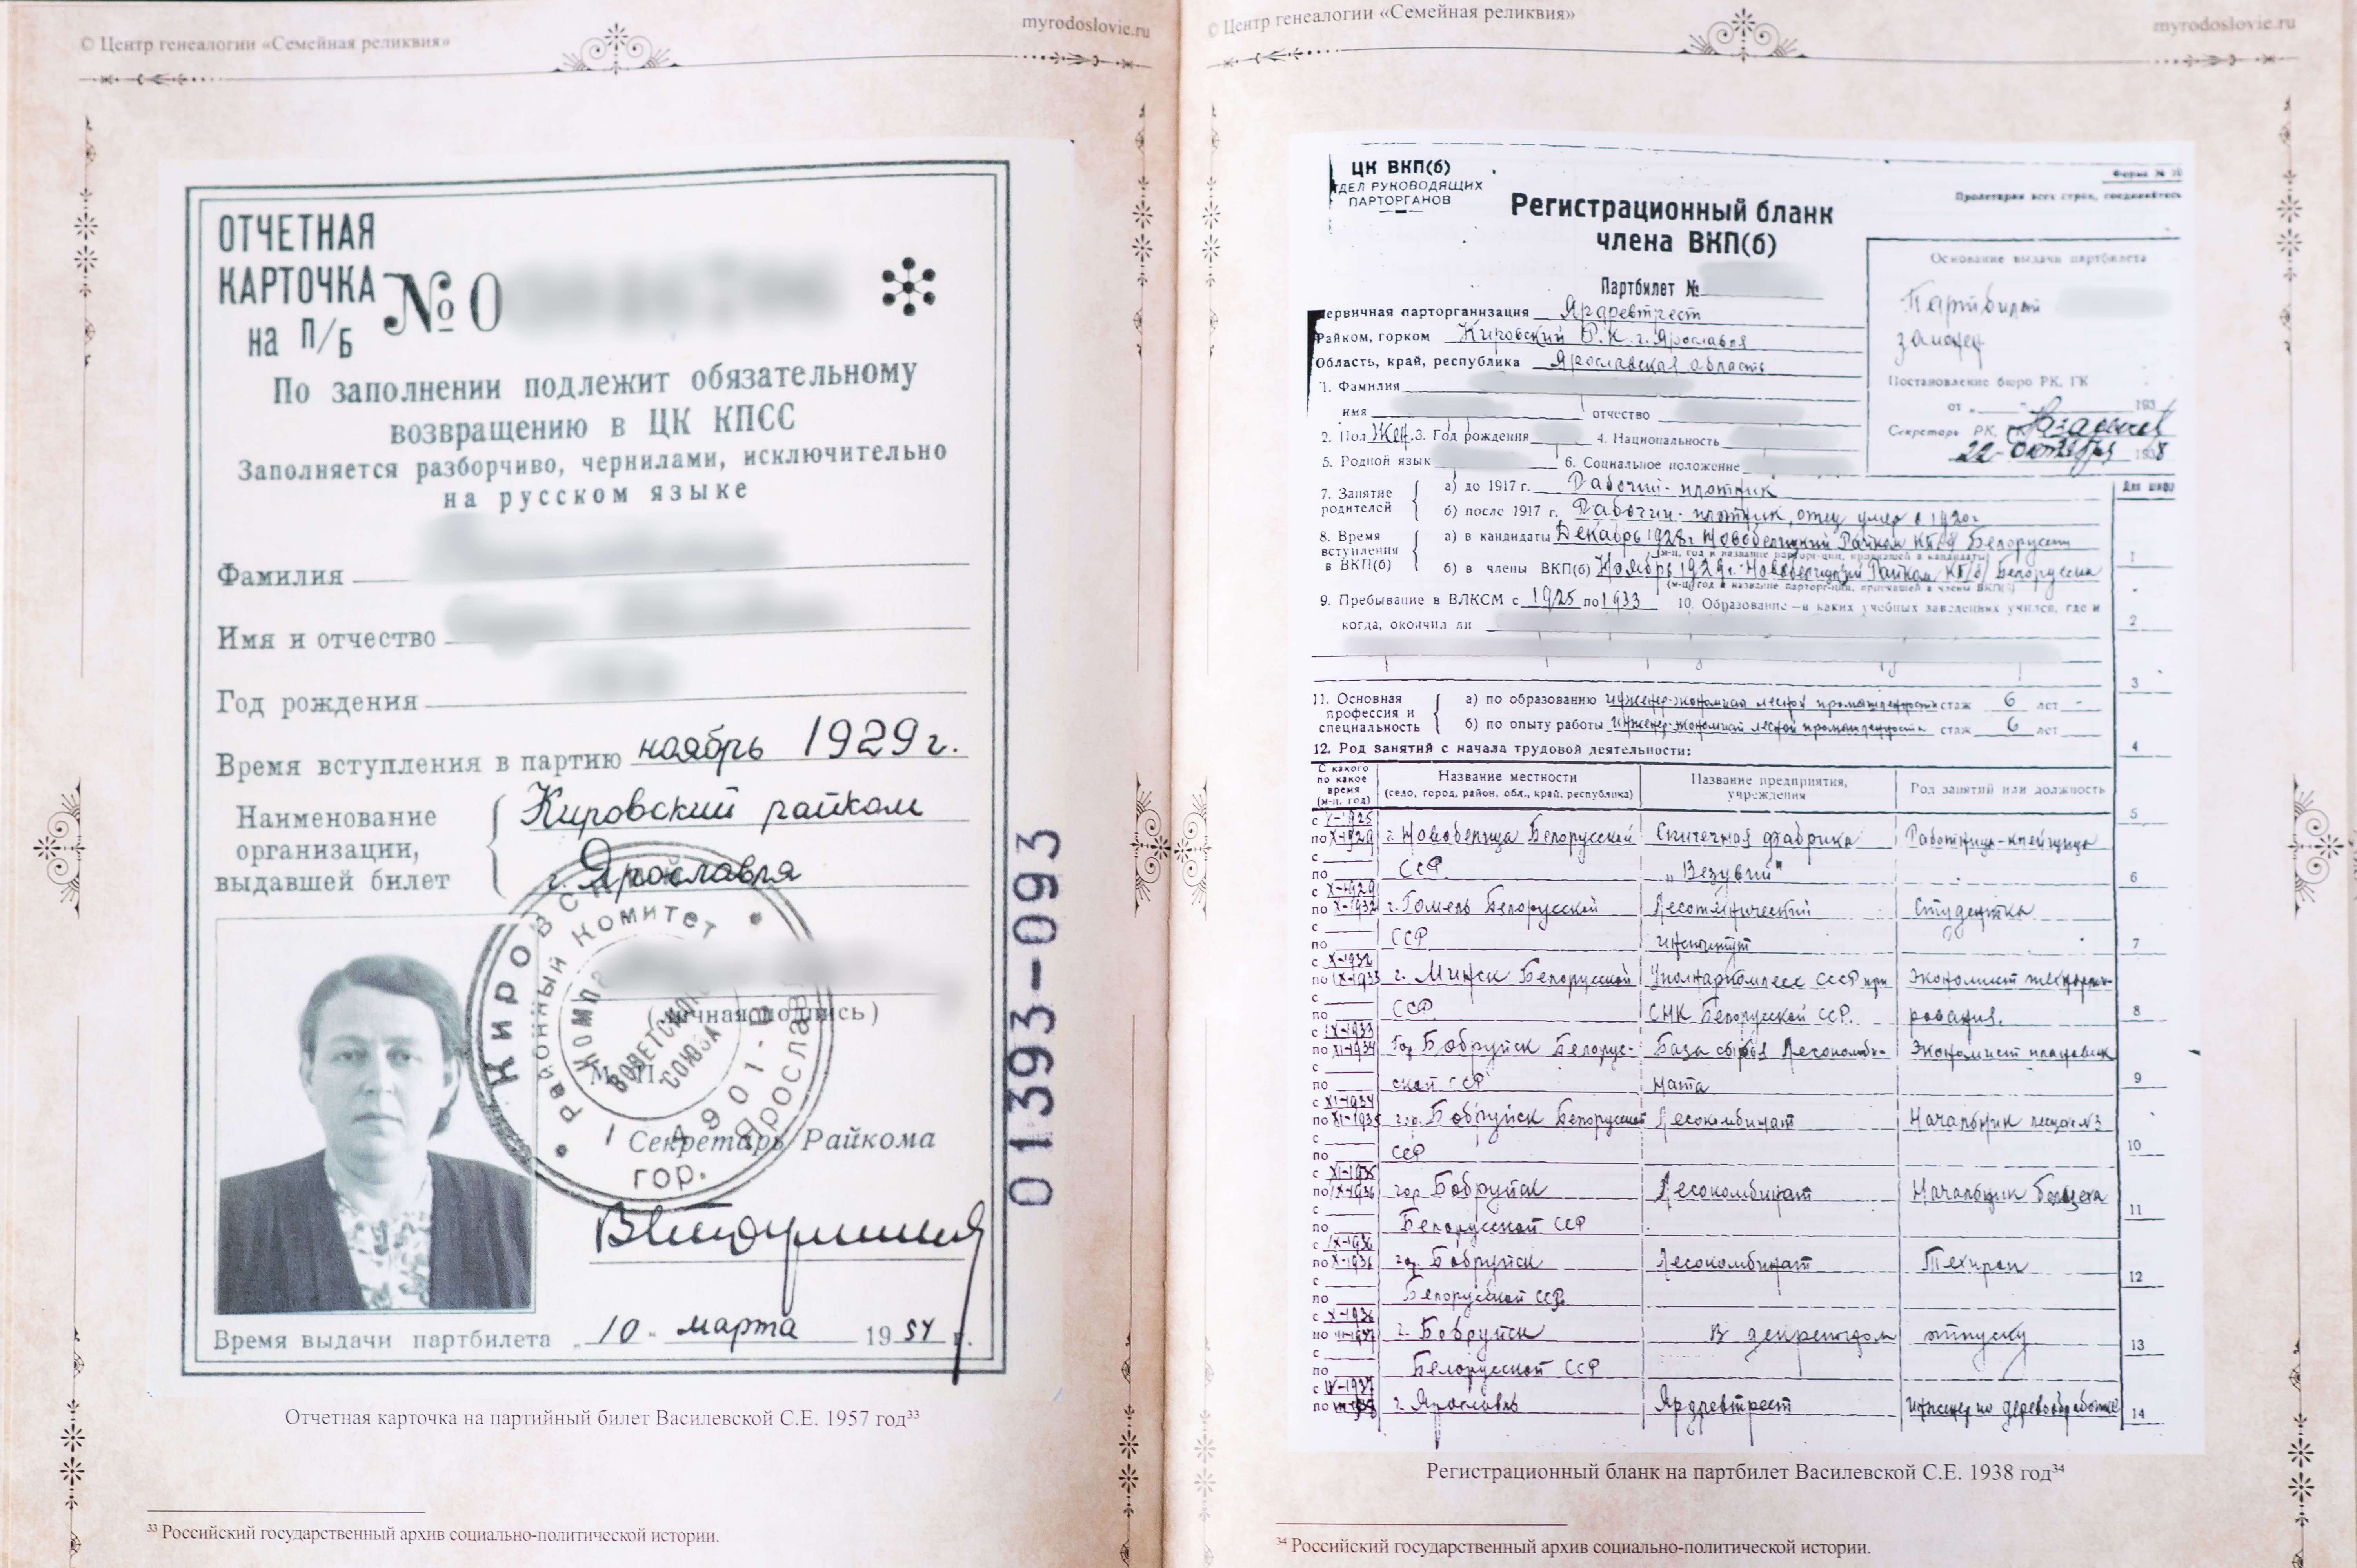 © Центр генеалогии «Семейная реликвия»
myrodoslovie.ru
ОТЧЕТНАЯ
КАРТОЧКА
на П/Б
№ 0
По заполнении подлежит обязательному
возвращению в ЦК КПСС
Заполняется разборчиво, чернилами, исключительно
на русском языке
Фамилия
Имя и отчество
Год рождения
Время вступления в партию ноябрь 1929 г.
Наименование
организации,
выдавшей билет
Кировский райком
г. Ярославля
Кировский
районный комитет
Советского
Союза
гор.
(личная подпись)
М. П.
Секретарь Райкома
Время выдачи партбилета „10" марта 1954 г.
01393-093
Отчетная карточка на партийный билет Василевской С.Е. 1957 год³³
³³ Российский государственный архив социально-политической истории.
© Центр генеалогии «Семейная реликвия»
myrodoslovie.ru
ЦК ВКП(б)
ДЕЛ РУКОВОДЯЩИХ
ПАРТОРГАНОВ
Форма № 10
Пролетарии всех стран, соединяйтесь
Регистрационный бланк
члена ВКП(б)
Партбилет №
Основание выдачи партбилета
Партбилет
Постановление бюро РК, ГК
от „ " 193
Секретарь РК,
22 октября 1938
ервичная парторганизация Ярдревтрест
Райком, горком Кировский Р.К. г. Ярославля
Область, край, республика Ярославская область
1. Фамилия
имя отчество
2. Пол Жен. 3. Год рождения 4. Национальность
5. Родной язык 6. Социальное положение
7. Занятие родителей
а) до 1917 г. Рабочий-плотник
б) после 1917 г. Рабочий-плотник, отец умер в 1920г
Для шифр
8. Время вступления в ВКП(б)
а) в кандидаты Декабрь 1928г Новобелицкий Райком КП(б) Белоруссии
(м-ц, год и название парторг-ции, принявшей в кандидаты)
б) в члены ВКП(б) Ноябрь 1929г. Новобелицкий Райком КП(б) Белоруссии
(м-ц, год и название парторг-ции, принявшей в члены ВКП(б))
9. Пребывание в ВЛКСМ с 1925 по 1933 10. Образование – в каких учебных заведениях учился, где и
когда, окончил ли
11. Основная профессия и специальность
а) по образованию инженер-экономист лесной промышленности стаж 6 лет
б) по опыту работы инженер-экономист лесной промышленности стаж 6 лет
12. Род занятий с начала трудовой деятельности:
С какого по какое время (м-ц, год)
Название местности
(село, город, район, обл., край, республика)
Название предприятия, учреждения
Род занятий или должность
с X-1925
по X-1929 г. Новобелица Белорусской Спичечная фабрика Работница-клейщица
ССР „Везувий"
с X-1929
по X-1932 г. Гомель Белорусской Лесотехнический Студентка
ССР институт
с X-1932
по IX-1933 г. Минск Белорусской Уполнаркомлеса СССР при Экономист
ССР СНК Белорусской ССР.
с IX-1933
по XI-1934 Гор Бобруйск Белорус- База сырья Лесокомби- Экономист плановик
ской ССР ната
с XI-1934
по XI-1935 гор. Бобруйск Белорусской Лесокомбинат Начальник
ССР
с XI-1935
по IX-1936 гор Бобруйск Лесокомбинат Начальник
Белорусской ССР
с IX-1936
по X-1936 гор. Бобруйск Лесокомбинат Техпроп
Белорусской ССР
с X-1936
по г. Бобруйск В декретном отпуску
Белорусской ССР
с IV-1937
по г. Ярославль Ярдревтрест Инженер по деревообработке
1
2
3
4
5
6
7
8
9
10
11
12
13
14
Регистрационный бланк на партбилет Василевской С.Е. 1938 год³⁴
³⁴ Российский государственный архив социально-политической истории.